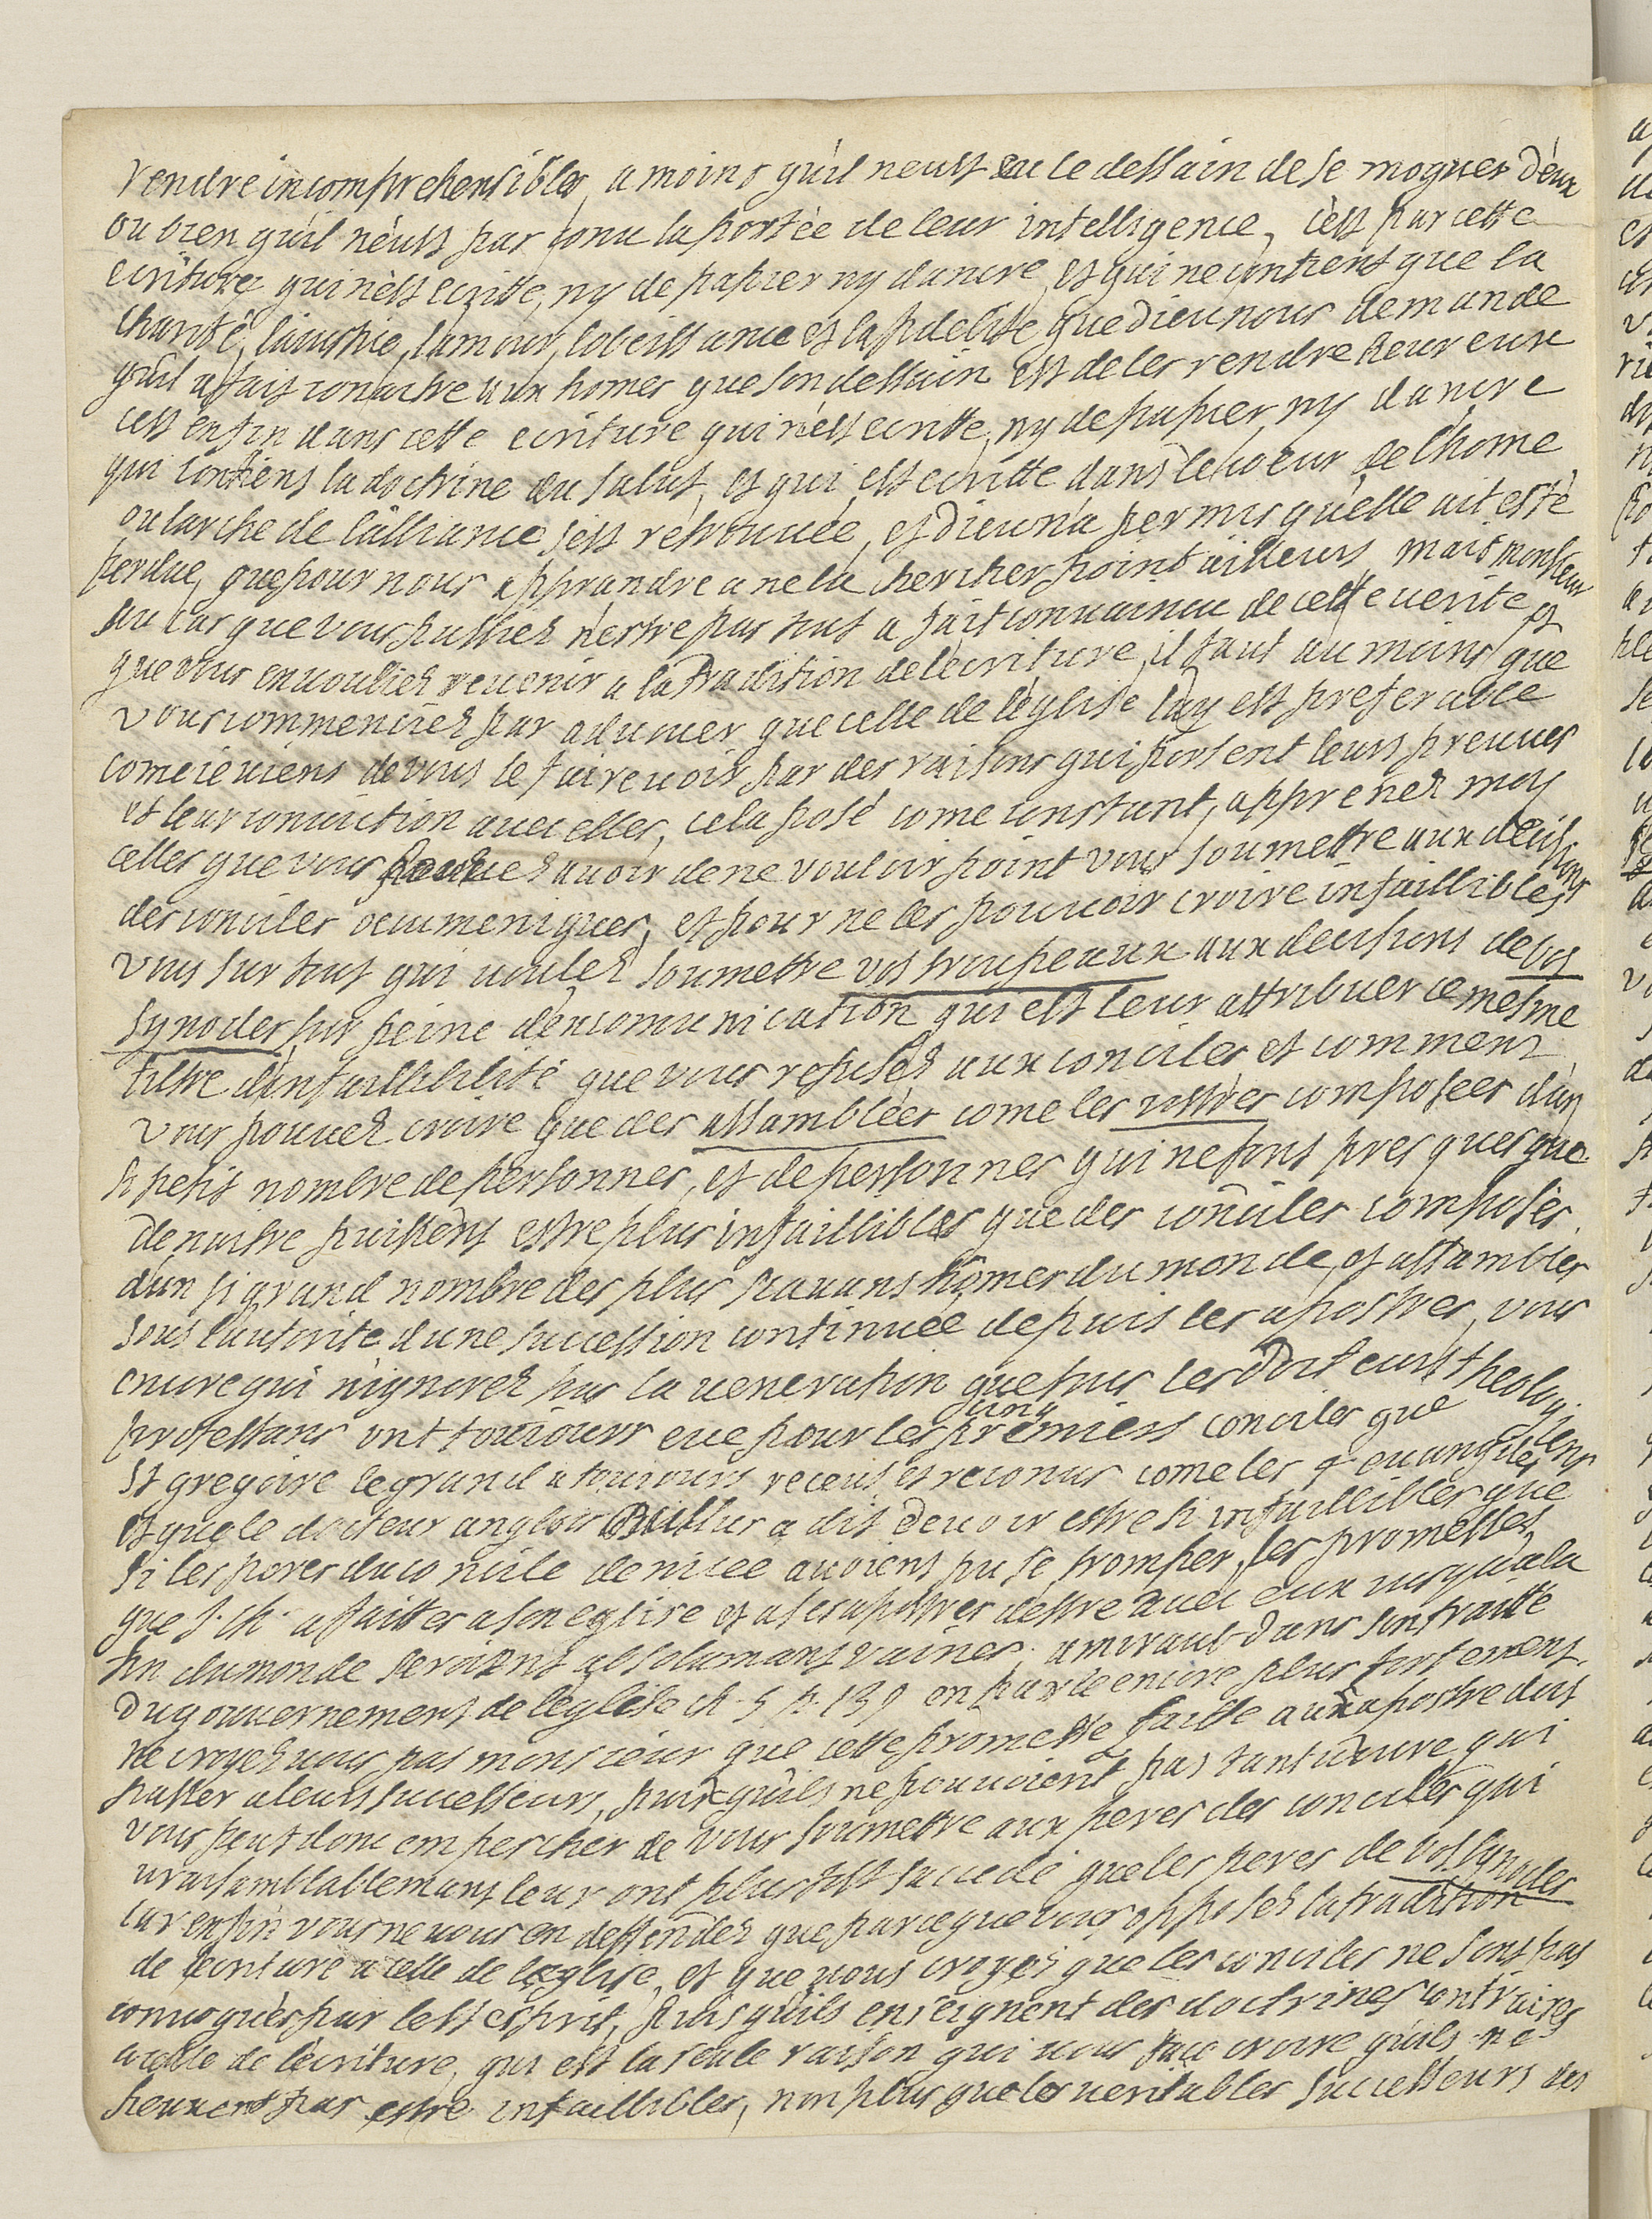 rendre incomprehensibles, a moins qu'il neust eu le dessain de se moquer d'eux
ou bien qu'il n'eust pas conu la portèe de leur intelligence, c'est par cette
ecriture qui n'est ecritte, ny de papier ny dancre et qui ne contient que la
charité, la iustice, lamour, lobeissance et la fidelité que dieu nous demande
qu'il a fait conoistre aux homes que son dessain est de les rendre heureux
cest enfin dans cette ecriture qui n'est ecritte, ny de papier, ny dancre
qui contient la doctrine du salut, et qui est ecritte dans le coeur de lhome
ou larche de lalliance s'est retrouuée, et dieu n'a permis qu'elle ait estè
perdue, que pour nous apprandre a ne la chercher point ailleurs, mais monsieur
au cas que vous pussiez n'estre pas tout a fait convaincu de cette verité et
que vous en voulier reuenir a la tradition de lecriture, il faut au moins que
vous commenciez par advouer que celle de léglise luy est preferable
come ie viens de vous le faire voir par des raisons qui portent leurs preuues
et leur conuiction auec elles, cela posé come constant, apprenez moy
celles que vous pouuez auoir de ne vouloir point vous soumettre aux decisions
des conciles oecumeniques, et pour ne les pouuoir croire infaillibles,
vous sur tout qui voulez soumettre vos troupeaux aux decisions de vos
synodes sur peine d'excomunication qui est leur attribuer ce mesme
tiltre d'infaillibilité que vous refusez aux conciles et comment
vous pouuez croire que des assamblèes come les vostres composees d'un
si petit nombre de personnes, et de personnes qui ne font presques que
de naitre puissent estre plus infaillibles que des conciles composès
d'un si grand nombre des plus scauans homes du monde, et assambles
sous lautorité d'une succession continuée depuis les apostres, vous
encore qui n'ignorez pas la veneration que tous les docteurs theologiens
protestans ont touiours eue pour les cinq premiers conciles que
St gregoire le grand a touiours receus et reconus come les 4 euangiles,
et que le docteur anglois Bullus a dit deuoir estre si infaillibles que
si les peres du concile de nicee auoient pu se tromper, les promesses
que J. Ch. a faittes a son eglise et a ses apostres d'estre auec eux iusqu'a la
fin du monde seroient absolumant vaines. amiraut dans son traitté
du gouuernement de leglise ch. 5 p. 139 en parle encore plus fortement.
ne croyez vous pas monsieur que cette promesse faitte aux apostre dut
passer a leurs successeurs, puis qu'ils ne pouuoient pas tant viure qui
vous peut donc empescher de vous soumettre aux peres des conciles qui
vraisamblablemant leur ont plustost succedé que les peres de vos synodes
car enfin vous ne vous en deffendez que parce que vous opposez la tradition
de lecriture a celle de leglise, et que vous croyez que les conciles ne sont pas
conuoquès par le St esprit, puis qu'ils enseignent des doctrines contraires
a celle de lècriture, qui est la seule raison qui vous face croire qu'ils ne
peuuent pas estre infaillibles, non plus que les veritables successeurs des